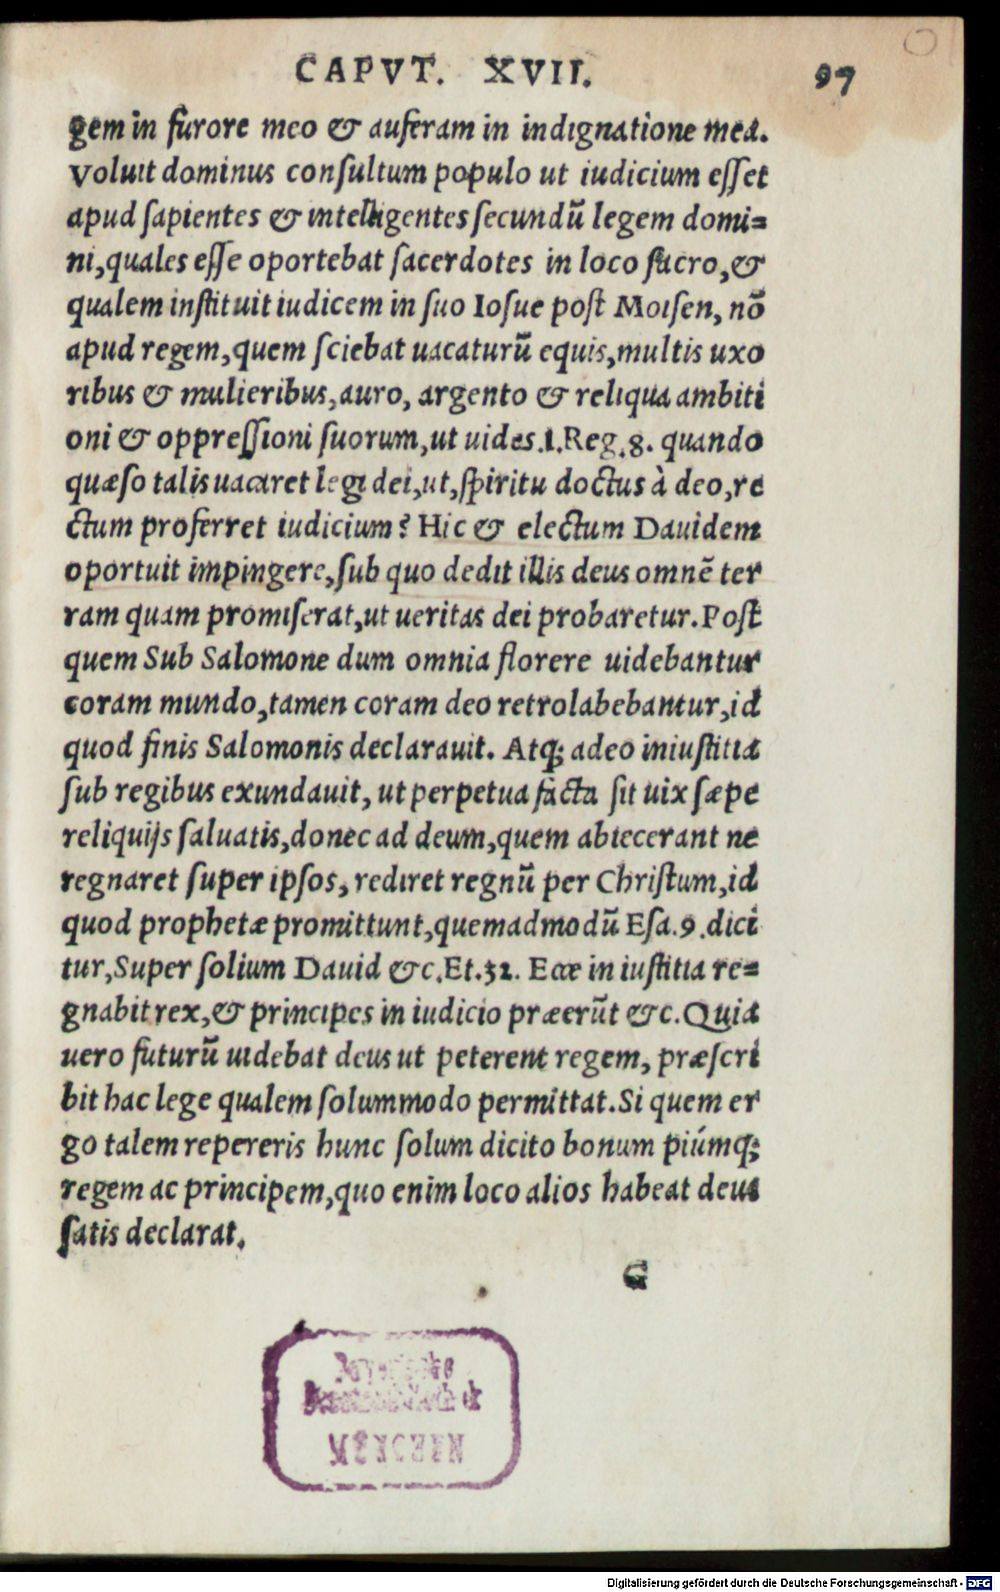 CAPVT. XVII. 97
gem in furore meo & auferam in indignatione mea.
Voluit dominus consultum populo ut iudicium esset
apud sapientes & intelligentes secundũ legem domi=
ni,quales esse oportebat sacerdotes in loco sacro,&
qualem instituit iudicem in suo Iosue post Moisen, nõ
apud regem,quem sciebat uacaturũ equis,multis uxo
ribus & mulieribus,auro, argento & reliqua ambiti
oni & oppressioni suorum,ut uides.1.Reg.8. quando
quæso talis uacaret legi dei,ut,spiritu doctus à deo,re
ctum proferret iudicium? Hic & electum Dauidem
oportuit impingere,sub quo dedit illis deus omnẽ ter
ram quam promiserat,ut ueritas dei probaretur.Post
quem Sub Salomone dum omnia florere uidebantur
coram mundo,tamen coram deo retrolabebantur,id
quod finis Salomonis declarauit. Atq; adeo iniustitia
sub regibus exundauit, ut perpetua facta sit uix sæpe
reliquijs saluatis,donec ad deum,quem abiecerant ne
regnaret super ipsos, rediret regnũ per Christum,id
quod prophetæ promittunt,quemadmodũ Esa.9.dici
tur,Super solium Dauid &c.Et.32. Ecce in iustitia re=
gnabit rex,& principes in iudicio præerũt &c.Quia
uero futurũ uidebat deus ut peterent regem, præscri
bit hac lege qualem solummodo permittat.Si quem er
go talem repereris hunc solum dicito bonum piúmq;
regem ac principem,quo enim loco alios habeat deus
satis declarat.
G
Bayerische
Staatsbibliothek
MÜNCHEN
Digitalisierung gefördert durch die Deutsche Forschungsgemeinschaft - DFG